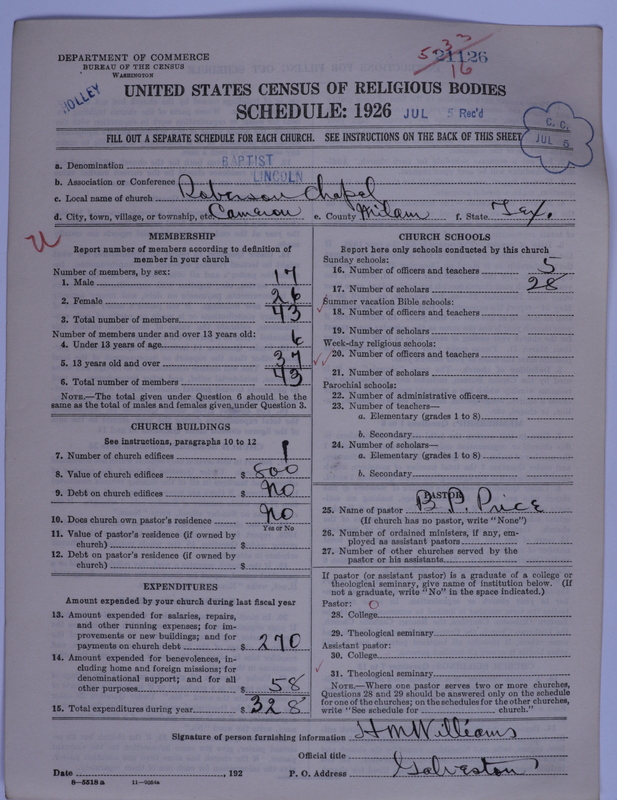 DEPARTMENT OF COMMERCE
BUREAU OF THE CENSUS
WASHINGTON
21126
5 3 3
16
HOLLEY
UNITED STATES CENSUS OF RELIGIOUS BODIES
SCHEDULE: 1926 JUL 5 Rec'd
C. C.
JUL 6
FILL OUT A SEPARATE SCHEDULE FOR EACH CHURCH. SEE INSTRUCTIONS ON THE BACK OF THIS SHEET
a. Denomination BAPTIST
b. Association or Conference LINCOLN
c. Local name of church Roberson Chapel
d. City, town, village, or township, etc. Cameron e. County Milam f. State Tex.
MEMBERSHIP
Report number of members according to definition of
member in your church
Number of members, by sex:
1. Male 17
2. Female 26
3. Total number of members 43
Number of members under and over 13 years old:
4. Under 13 years of age 6
5. 13 years old and over 37
6. Total number of members 43
NOTE.—The total given under Question 6 should be the
same as the total of males and females given under Question 3.
CHURCH BUILDINGS
See instructions, paragraphs 10 to 12
7. Number of church edifices 1
8. Value of church edifices $ 500
9. Debt on church edifices $ No
10. Does church own pastor's residence No
Yes or No
11. Value of pastor's residence (if owned by
church) $
12. Debt on pastor's residence (if owned by
church) $
EXPENDITURES
Amount expended by your church during last fiscal year
13. Amount expended for salaries, repairs,
and other running expenses; for im-
provements or new buildings; and for
payments on church debt $ 270
14. Amount expended for benevolences, in-
cluding home and foreign missions; for
denominational support; and for all
other purposes $ 58
15. Total expenditures during year $ 328
CHURCH SCHOOLS
Report here only schools conducted by this church
Sunday schools:
16. Number of officers and teachers 5
17. Number of scholars 28
Summer vacation Bible schools:
18. Number of officers and teachers
19. Number of scholars
Week-day religious schools:
20. Number of officers and teachers
21. Number of scholars
Parochial schools:
22. Number of administrative officers
23. Number of teachers—
a. Elementary (grades 1 to 8)
b. Secondary
24. Number of scholars—
a. Elementary (grades 1 to 8)
b. Secondary
PASTOR
25. Name of pastor B. P. Price
(If church has no pastor, write "None")
26. Number of ordained ministers, if any, em-
ployed as assistant pastors
27. Number of other churches served by the
pastor or his assistants
If pastor (or assistant pastor) is a graduate of a college or
theological seminary, give name of institution below. (If
not a graduate, write "No" in the space indicated.)
Pastor:
28. College
29. Theological seminary
Assistant pastor:
30. College
31. Theological seminary
NOTE.—Where one pastor serves two or more churches,
Questions 28 and 29 should be answered only on the schedule
for one of the churches; on the schedules for the other churches,
write "See schedule for church."
Signature of person furnishing information H M Williams
Official title
Date , 192 P. O. Address Galveston
8-5518 a 11-9054a